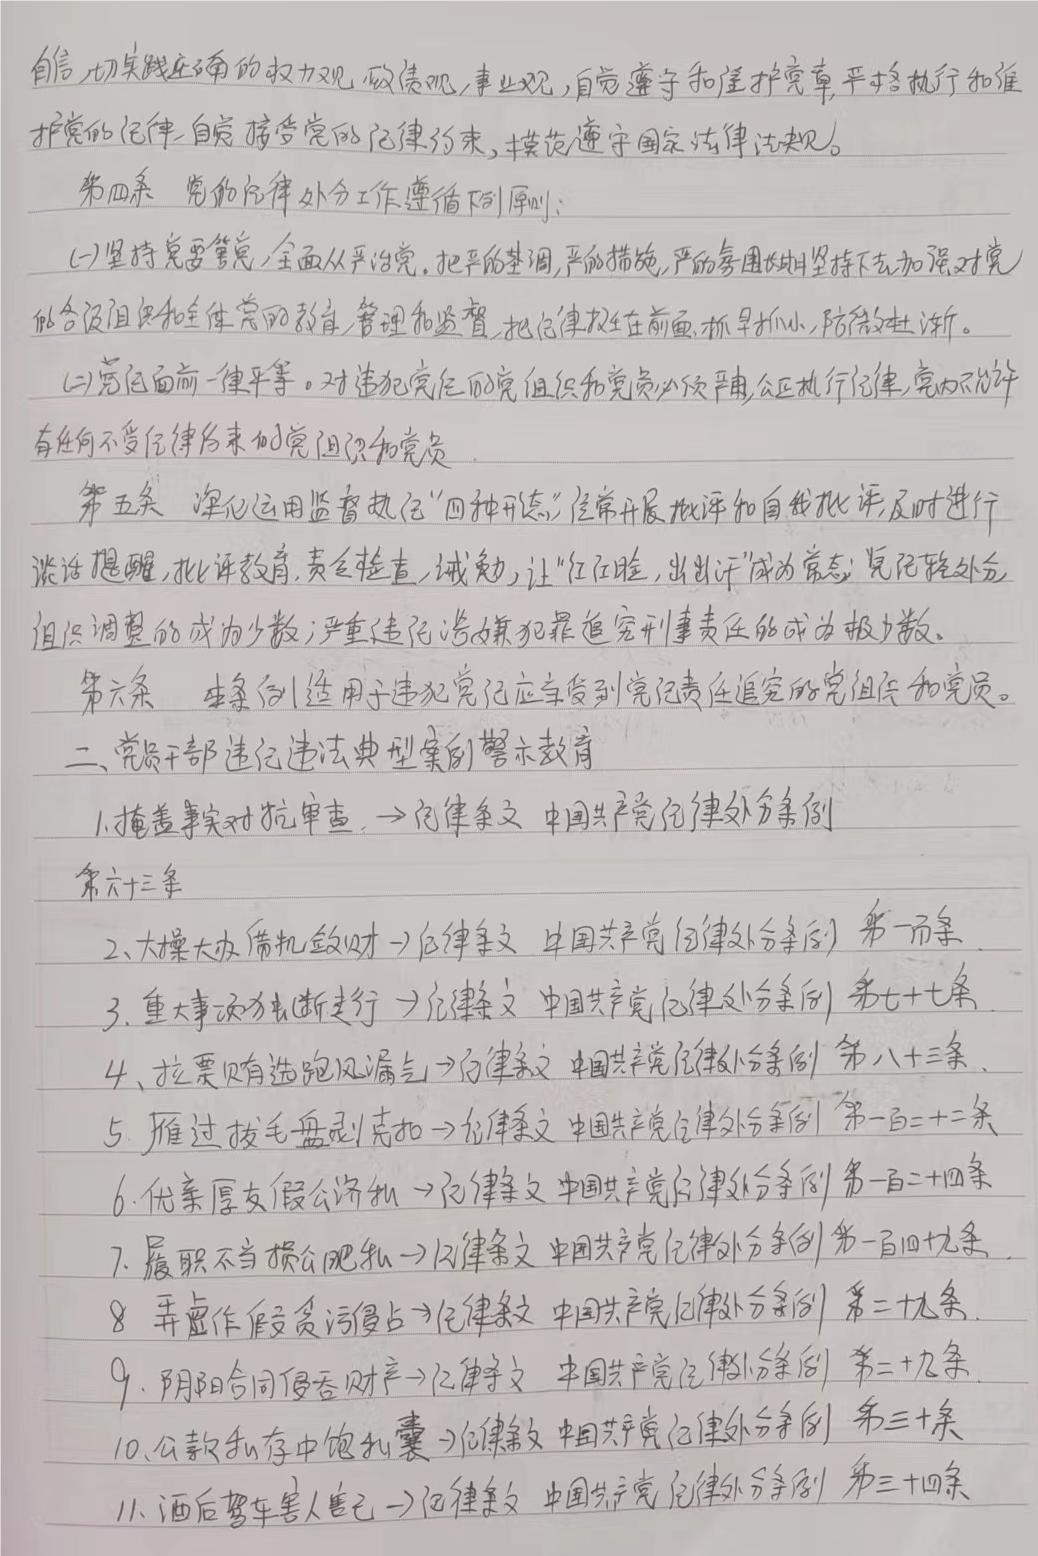 自信,切实践正确的权力观、政绩观、事业观,自觉遵守和维护党章,严格执行和维
护党的纪律,自觉接受党的纪律约束,模范遵守国家法律法规。
第四条 党的纪律处分工作遵循下列原则:
(一)坚持党要管党,全面从严治党。把严的基调,严的措施,严的氛围长期坚持下去,加强对党
的各级组织和全体党的教育,管理和监督,把纪律挺在前面,抓早抓小,防微杜渐。
(二)党纪面前一律平等。对违犯党纪的党组织和党员必须严肃,公正执行纪律,党内不允许
有任何不受纪律约束的党组织和党员
第五条 深化运用监督执纪“四种形态”,经常开展批评和自我批评,及时进行
谈话提醒,批评教育,责令检查,诫勉,让“红红脸,出出汗”成为常态;党纪轻处分,
组织调整的成为少数;严重违纪涉嫌犯罪追究刑事责任的成为极少数。
第六条 本条例适用于违犯党纪应当受到党纪责任追究的党组织和党员。
二、党员干部违纪违法典型案例警示教育
1.掩盖事实对抗审查.→纪律条文 中国共产党纪律处分条例
第六十三条
2、大操大办借机敛财→纪律条文 中国共产党纪律处分条例 第一百条.
3.重大事项独断专行→纪律条文 中国共产党纪律处分条例 第七十七条
4、拉票贿选跑风漏气→纪律条文 中国共产党纪律处分条例 第八十三条.
5.雁过拔毛盘剥克扣→纪律条文 中国共产党纪律处分条例 第一百二十二条
6.优亲厚友假公济私→纪律条文 中国共产党纪律处分条例 第一百二十四条
7.履职不当损公肥私→纪律条文 中国共产党纪律处分条例 第一百四十九条.
8 弄虚作假贪污侵占→纪律条文 中国共产党纪律处分条例 第二十九条.
9.阴阳合同侵吞财产→纪律条文 中国共产党纪律处分条例 第二十九条.
10.公款私存中饱私囊→纪律条文 中国共产党纪律处分条例 第三十条
11.酒后驾车害人害己→纪律条文 中国共产党纪律处分条例 第三十四条